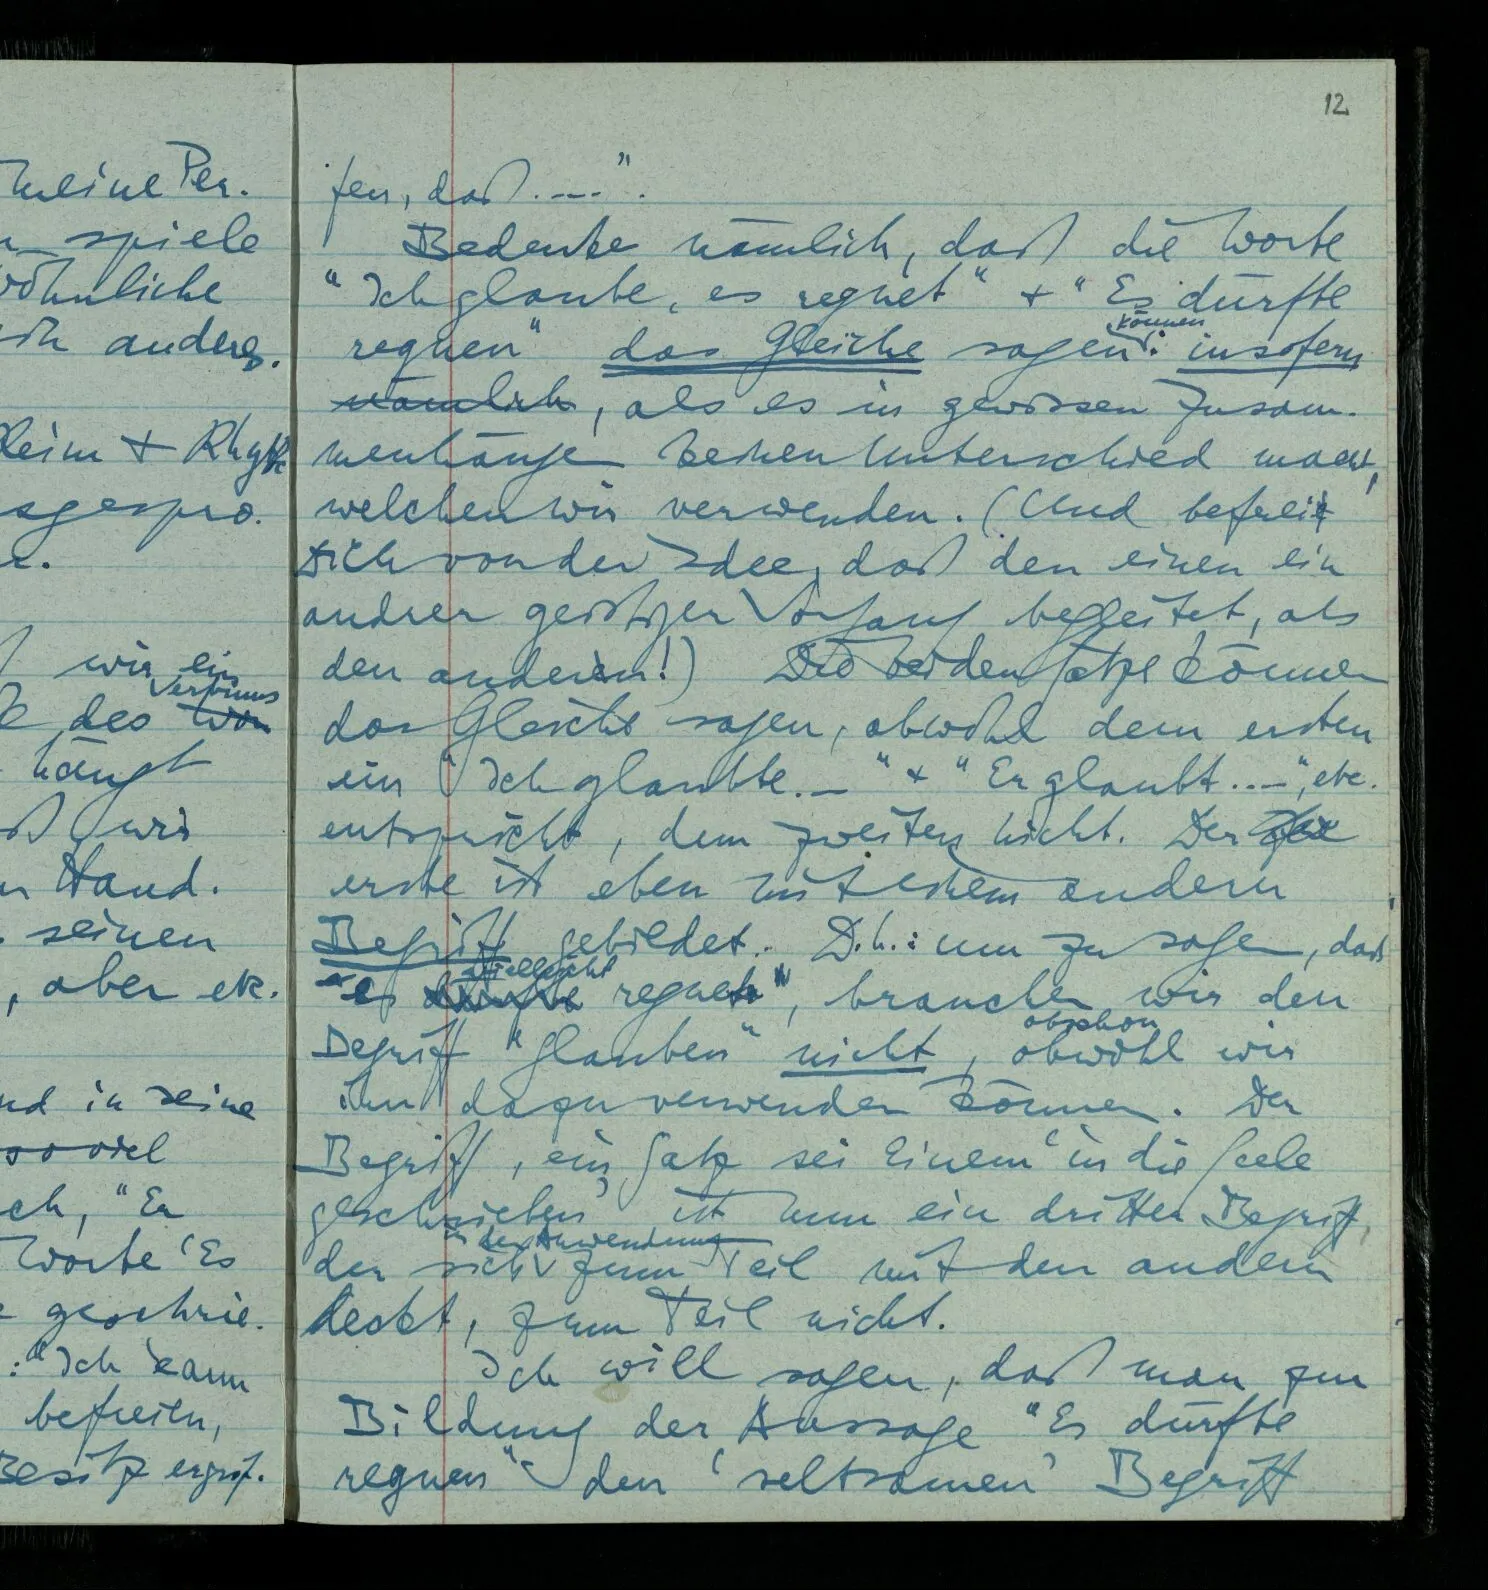 meine Per-
spiele
wöhnliche
sich anders.
Reim + Rhyth
sgespro-
wir ein
Verbums
des Wor
hängt
wir
Hand.
seinen
, aber etc.
und in seine
soviel
ch, "Er
Worte 'Es
geschrie-
: "Ich kann
befreien,
Besitz ergrif-
12
fen, daß ....".
Bedenke nämlich, daß die Worte
"Ich glaube, es regnet" + "Es dürfte
können
regnen" das Gleiche sagen: insofern
nämlich, als es in gewissen Zusam-
menhängen keinen Unterschied macht,
welchen wir verwenden. (Und befreie
Dich von der Idee, daß den einen ein
andrer geistiger Vorgang begleitet, als
den anderen!) Die beiden Sätze können
das Gleiche sagen, obwohl dem ersten
ein "Ich glaubte..." + "Er glaubt ...", etc.
entspricht, dem zweiten nicht. Der
erste ist eben mit einem andern
Begriff gebildet. D.h.: um zu sagen, daß
vielleicht
"es dürfte regnet", brauchen wir den
obschon
Begriff "glauben" nicht, obwohl wir
ihn dazu verwenden können. Der
Begriff, ein Satz sei Einem 'in die Seele
geschrieben', ist nun ein dritter Begriff,
in der Anwendung
der sich zum Teil mit den andern
deckt, zum Teil nicht.
Ich will sagen, daß man zur
Bildung der Aussage "Es dürfte
regnen" den 'seltsamen' Begriff